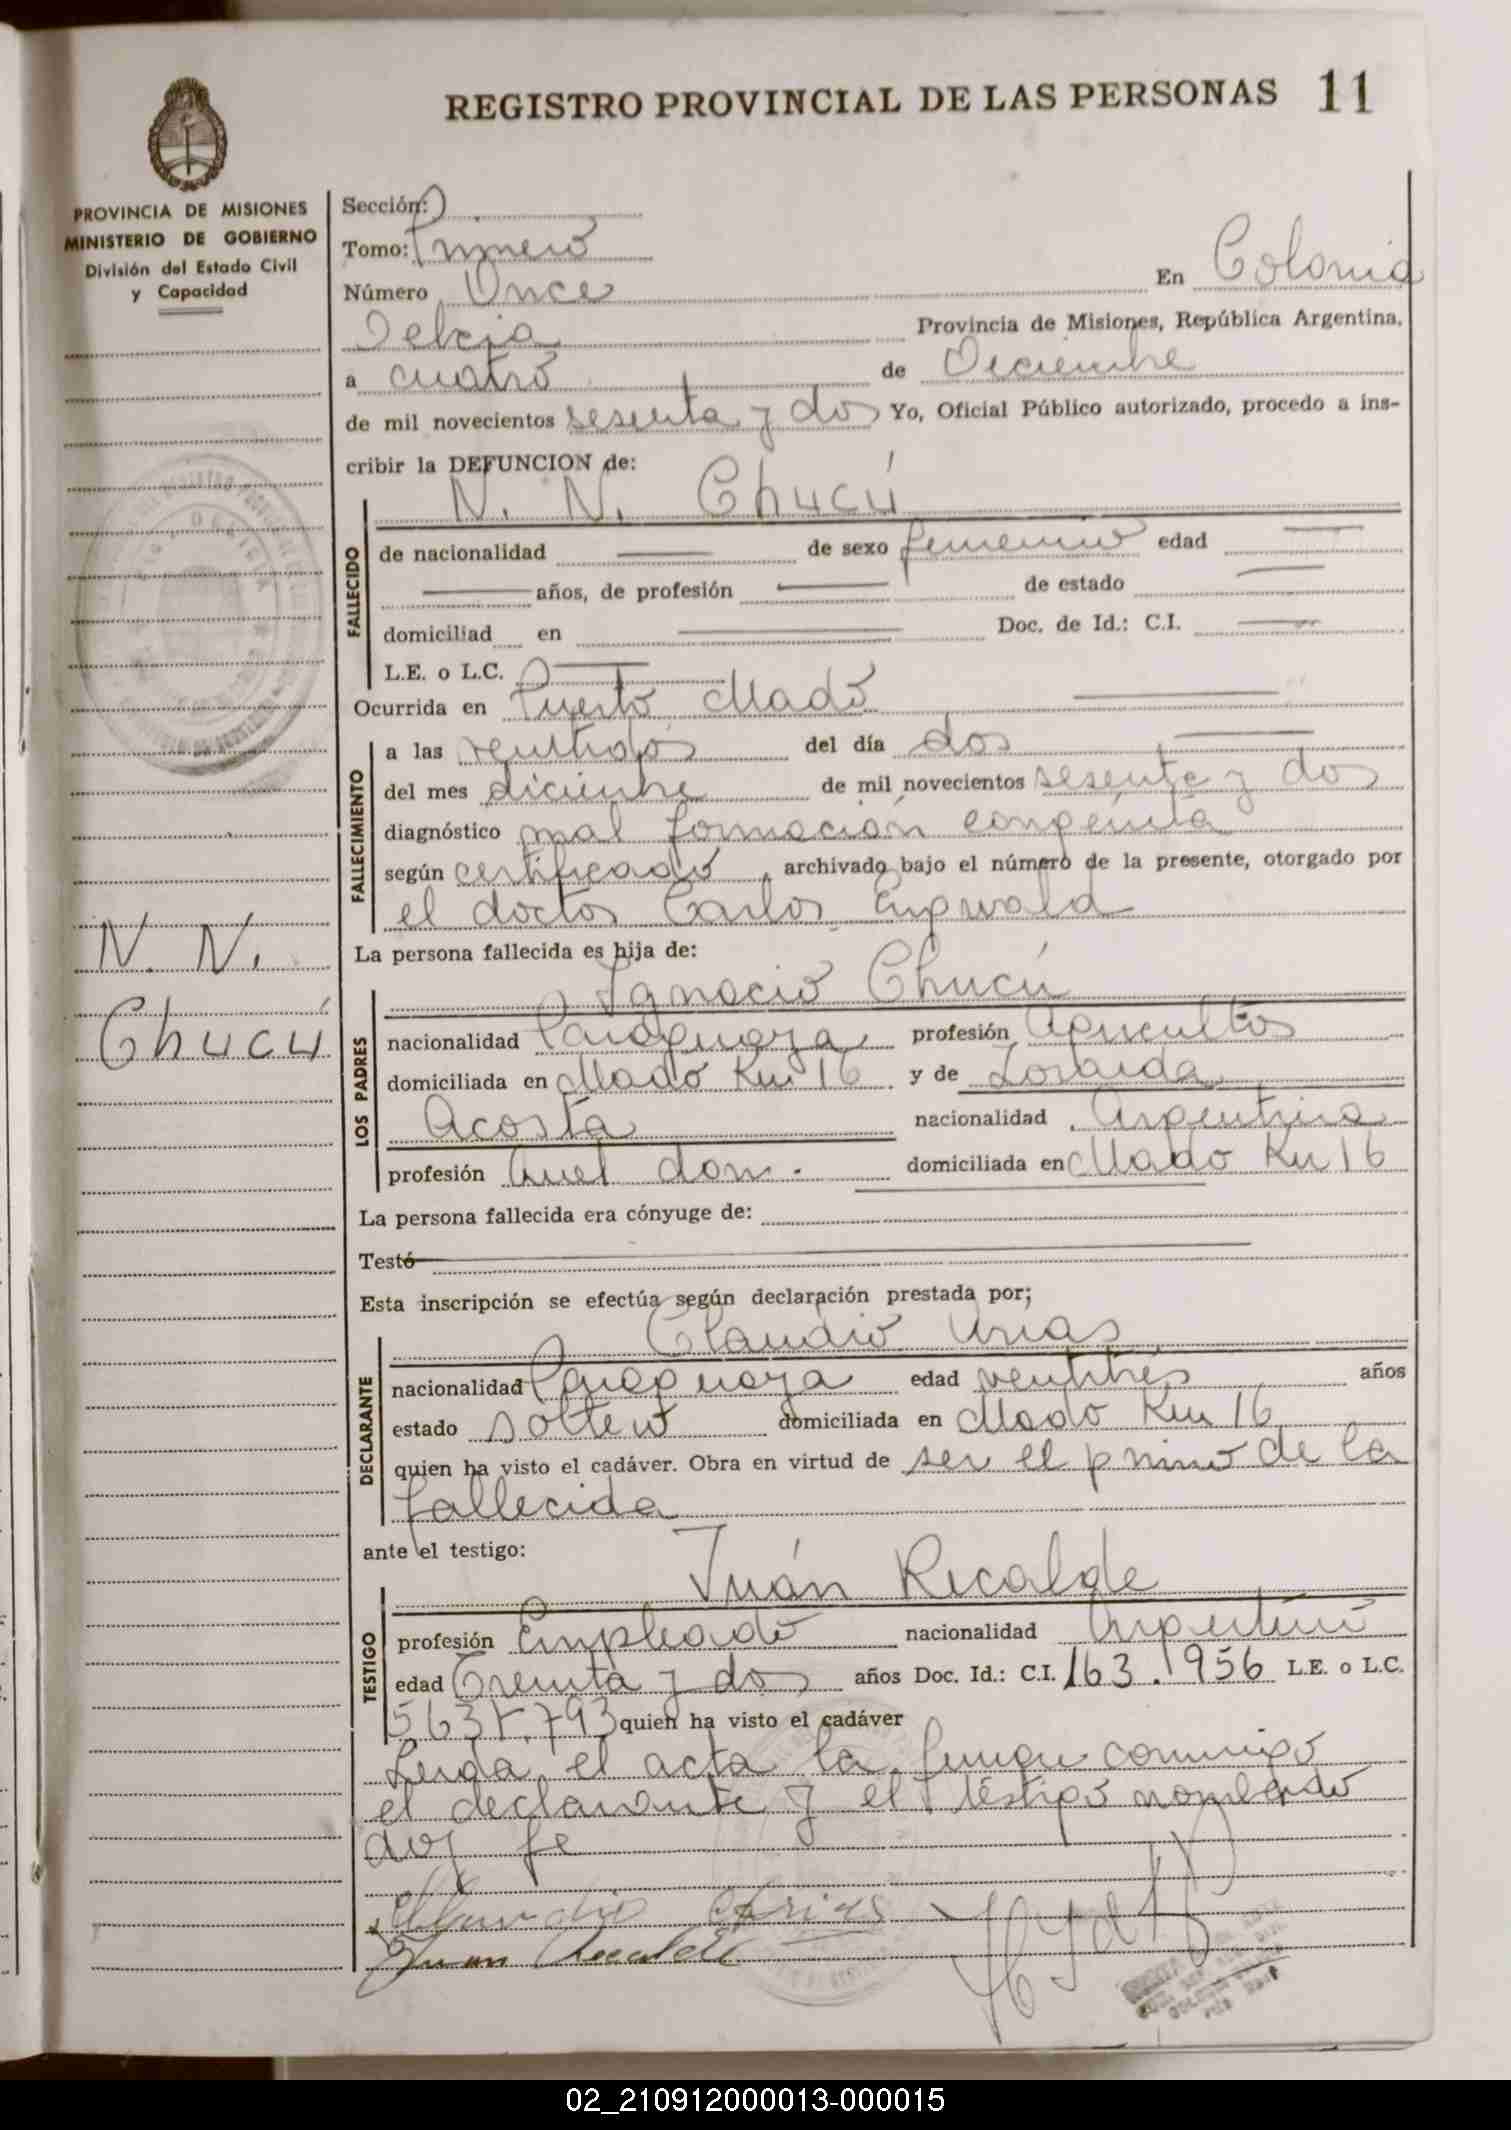 REGISTRO PROVINCIAL DE LAS PERSONAS 11
PROVINCIA DE MISIONES
MINISTERIO DE GOBIERNO
División del Estado Civil
y Capacidad
Sección:
Tomo: Primero
Número Once En Colonia
Delicia Provincia de Misiones, República Argentina,
a cuatro de Diciembre
de mil novecientos sesenta y dos Yo, Oficial Público autorizado, procedo a ins-
cribir la DEFUNCION de:
N. N. Chucú
FALLECIDO
de nacionalidad de sexo femenino edad
años, de profesión de estado
domiciliad en Doc. de Id.: C.I.
L.E. o L.C.
Ocurrida en Puerto Mado
FALLECIMIENTO
a las ventidos del día dos
del mes diciembre de mil novecientos sesenta y dos
diagnóstico mal formación congénita
según certificado, archivado bajo el número de la presente, otorgado por
el doctor Carlos
N. N.
Chucú
La persona fallecida es hija de:
Ignacio Chucú
LOS PADRES
nacionalidad Paraguaya profesión agricultor
domiciliada en Mado Km 16 y de Zoraida
Acosta nacionalidad Argentina
profesión Quel dom. domiciliada en Mado Km 16
La persona fallecida era cónyuge de:
Testó
Esta inscripción se efectúa según declaración prestada por;
Claudio Arias
DECLARANTE
nacionalidad Paraguaya edad ventitrés años
estado soltero domiciliada en Mado Km 16
quien ha visto el cadáver. Obra en virtud de ser el primo de la
fallecida
ante el testigo:
Juán Recalde
TESTIGO
profesión Empleado nacionalidad Argentino
edad Treinta y dos años Doc. Id.: C.I. 163.956 L.E. o L.C.
quien ha visto el cadáver
Leida el acta la firman conmigo
el declarante y el testigo nombrado
doy fe
Claudio Arias
Juan Recalde
02_210912000013-000015